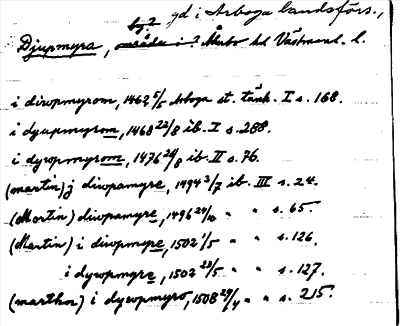 by? gd i Arboga landsförs.,
Djupmyra, område i ? Åkerbo hd Västmanl. l.
i diwpmyrom, 1462 5/5 Arboga st. tänk. I s. 168.
i dyupmyrom, 1468 22/8 ib. I s. 288.
i dywpmyrom, 1476 26/8 ib. II s. 76.
(martin) j diwpamyre, 1494 3/7 ib. III s. 24.
(Mortin) diwpamyre, 1496 24/10 " " s. 65.
(Martin) i diwpmyre, 1502 1/5 " " s. 126.
i dywpmyre, 1502 23/5 " " s. 127.
(marthn) i dywpmyro, 1508 29/4 " " s. 215.